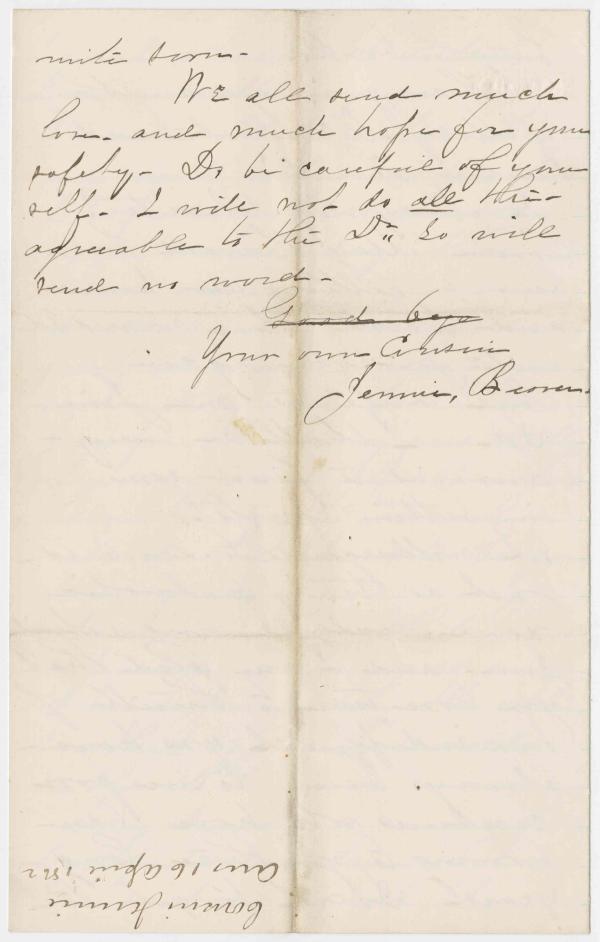 write soon-
We all send much
love- and much hope for your
safety- Do be careful of your
self- I will not do all the-
agreeable to the Dr. so will
send no word-
Good bye
Your own Cousin
Jennie,
Cousin Jennie
Ans 16 April 1862